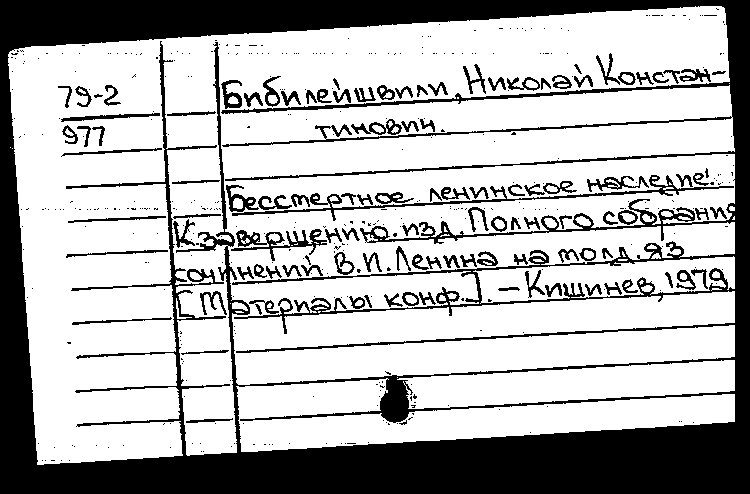 79-2
977
Бибилейшвили, Николай Констан-
тинович.
Бесстертное ленинское наследие!
К завершению изд. Полного собрания
сочинений В.И. Ленина на молд. яз
[Материалы конф.]. – Кишинев, 1979.